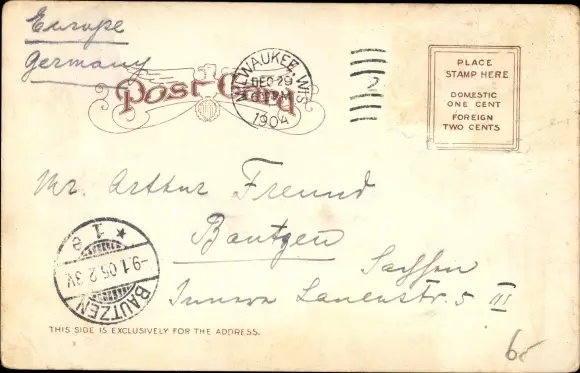 Europe
Germany
Post Card
MILWAUKEE, WIS.
DEC 29
1904
2
PLACE
STAMP HERE
DOMESTIC
ONE CENT
FOREIGN
TWO CENTS
Mr. Arthur Freund
Bautzen
Sachsen
Innere Lauenstr. 5 III
1 e
-9.1.05.2-3V.
BAUTZEN
THIS SIDE IS EXCLUSIVELY FOR THE ADDRESS.